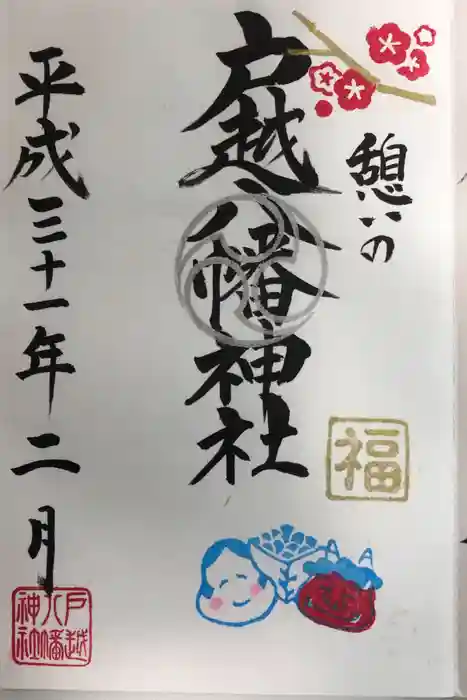 憩いの
戸越八幡神社
福
平成三十一年二月
戸越
八幡
神社